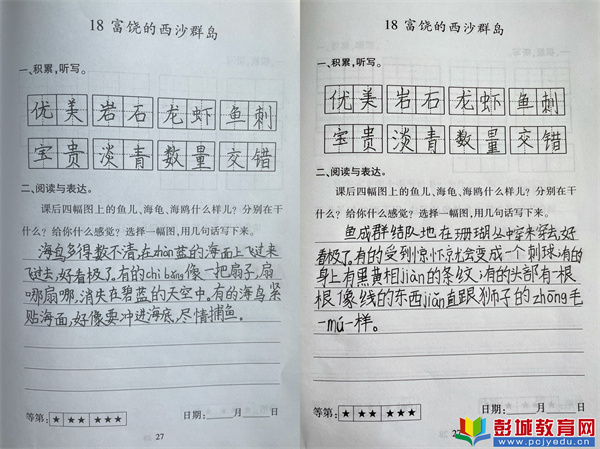 18 富饶的西沙群岛
一、积累,听写。
优美 岩石 龙虾 鱼刺
宝贵 淡青 数量 交错
二、阅读与表达。
课后四幅图上的鱼儿、海龟、海鸥什么样儿?分别在干
什么?给你什么感觉?选择一幅图,用几句话写下来。
海鸟多得数不清,在zhàn蓝的海面上飞过来
飞过去,好看极了。有的chì bǎng像一把扇子,扇
哪扇哪,消失在碧蓝的天空中。有的海鸟紧
贴海面,好像要冲进海底,尽情捕鱼。
等第: ★ ★★ ★★★ 日期: 月 日
27
18 富饶的西沙群岛
一、积累,听写。
优美 岩石 龙虾 鱼刺
宝贵 淡青 数量 交错
二、阅读与表达。
课后四幅图上的鱼儿、海龟、海鸥什么样儿?分别在干
什么?给你什么感觉?选择一幅图,用几句话写下来。
鱼成群结队地在珊瑚丛中穿来穿去,好
看极了。有的受到惊吓就会变成一个刺球;有的
身上有黑黄相jiàn的条纹;有的头部有一根
根像线的东西jiǎn直跟狮子的zhōng毛
一mú一样。
等第: ★ ★★ ★★★ 日期: 月 日
27
彭城教育网
www.pcjyedu.cn